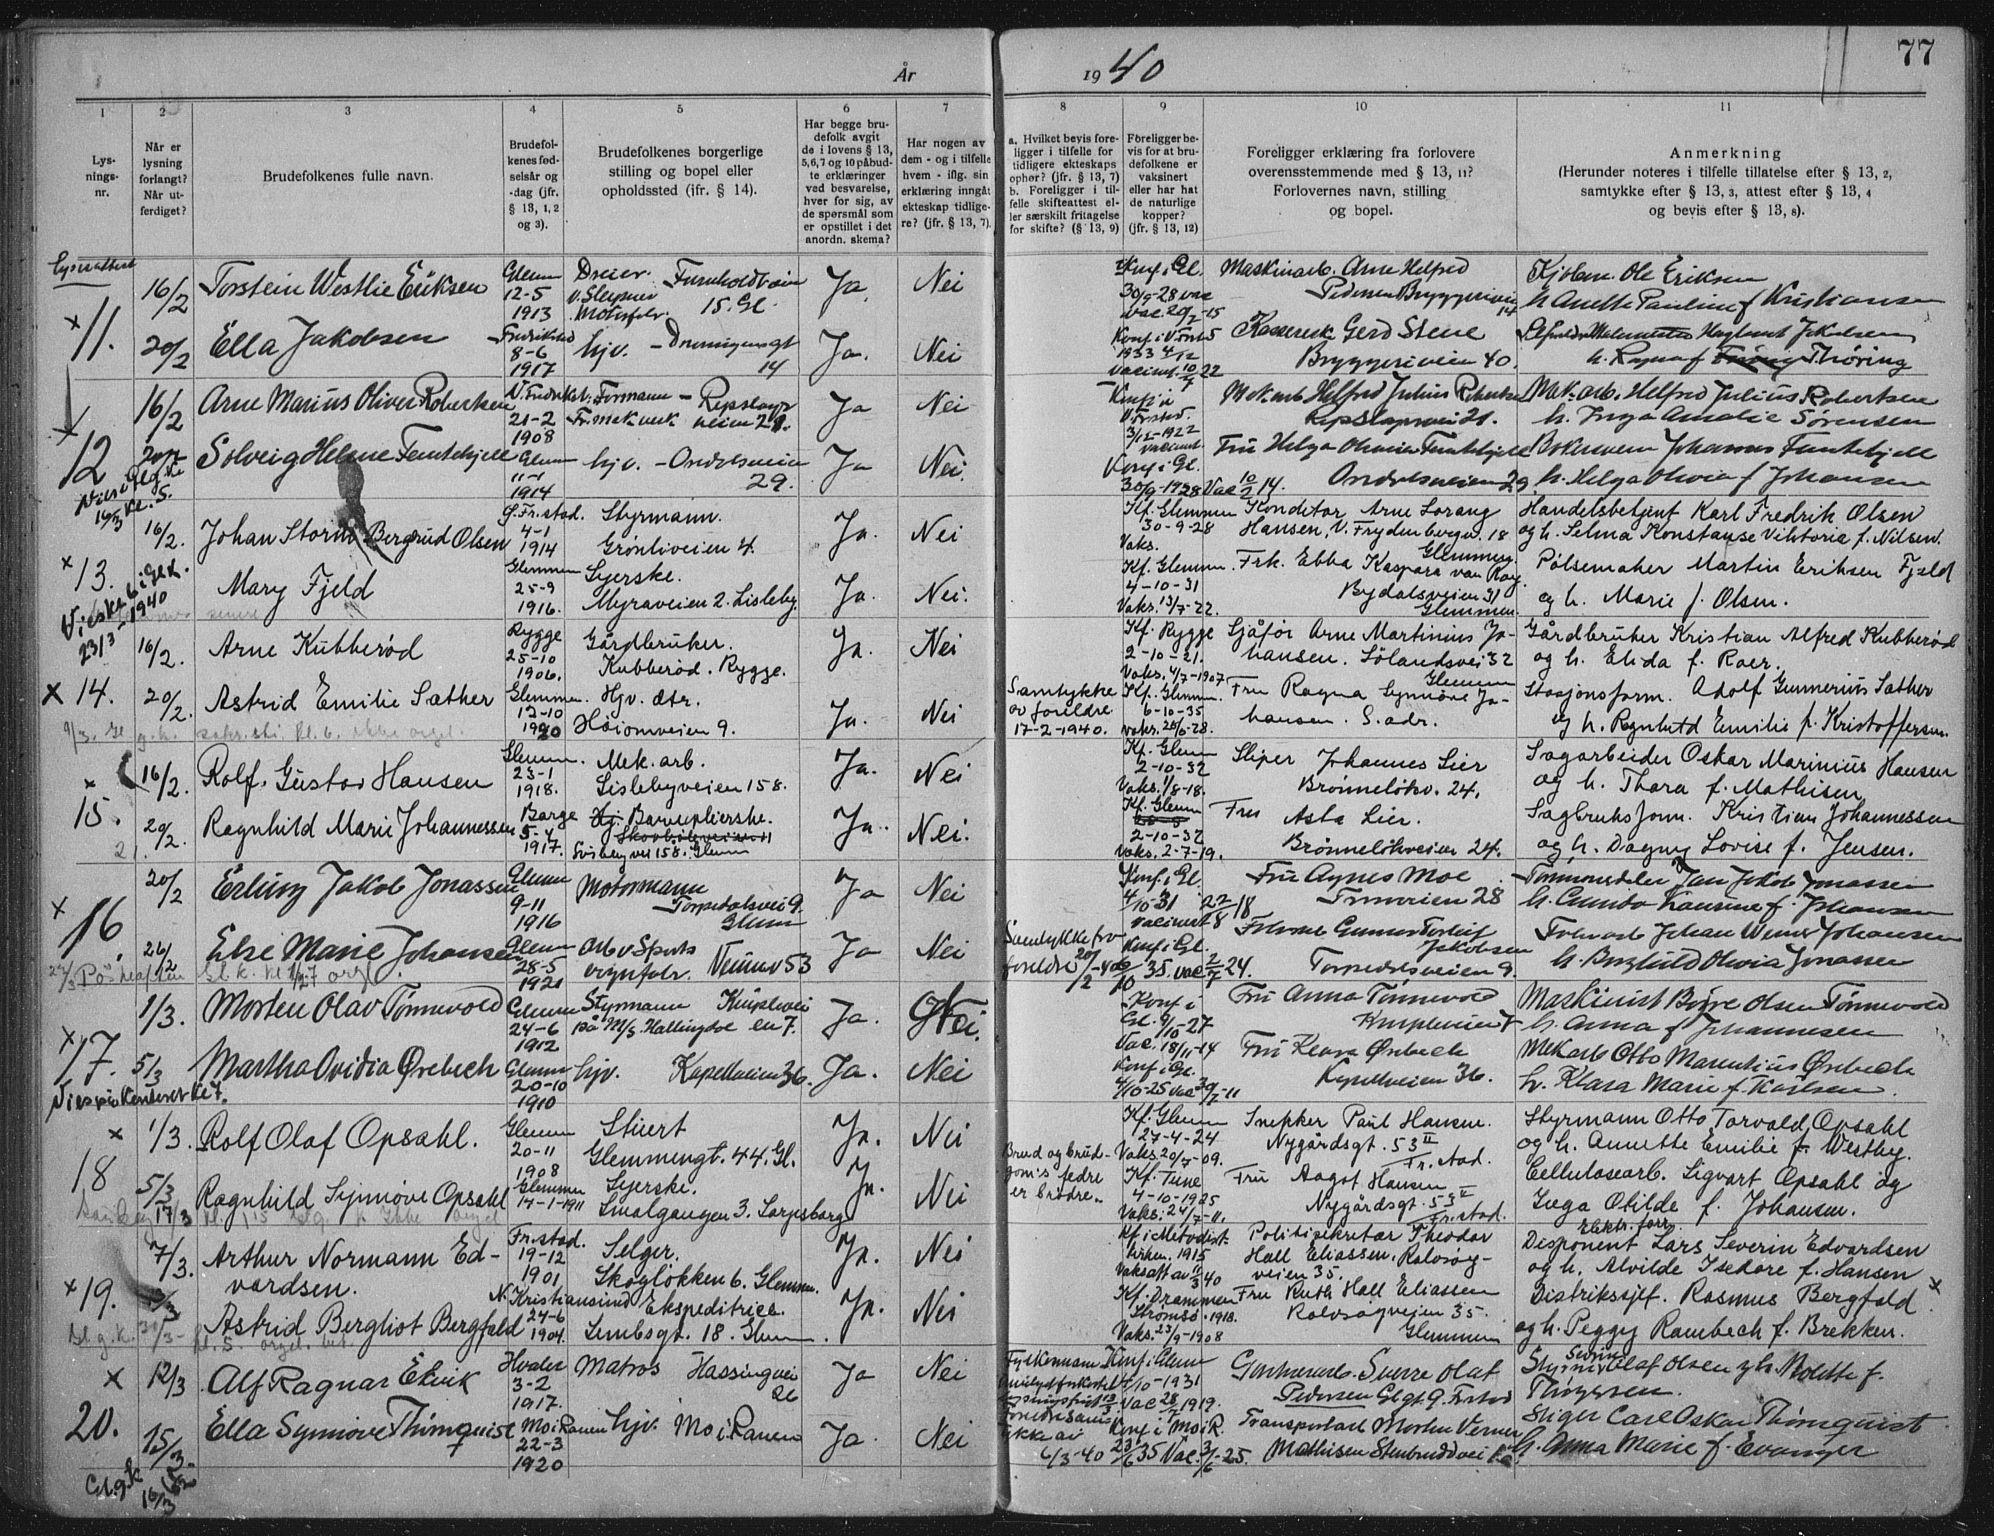 År 1940
77
1 2 3 4 5 6 7 8 9 10 11
Lys-
nings-
nr.
Når er
lysning
forlangt?
Når ut-
ferdiget?
Brudefolkenes fulle navn.
Brudefol-
kenes fød-
selsår og
-dag (jfr.
§ 13, 1, 2
og 3).
Brudefolkenes borgerlige
stilling og bopel eller
opholdssted (ifr. § 14).
Har begge bru-
defolk avgit
de i lovens § 13,
5,6,7 og 10 påbud-
te erklæringer
ved besvarelse,
hver for sig, av
de spørsmål som
er opstillet i det
anordn. skema?
Har nogen av
dem - og i tilfelle
hvem - iflg. sin
erklæring inngått
ekteskap tidlige-
re? (jfr. § 13, 7).
a. Hvilket bevis fore-
ligger i tilfelle for
tidligere ekteskaps
ophør? (jfr. § 13, 7)
b. Foreligger i til-
felle skifteattest el-
ler særskilt fritagelse
for skifte? (§ 13, 9)
Foreligger be-
vis for at bru-
defolkene er
vaksinert
eller har hat
de naturlige
kopper?
(jfr. § 13, 12)
Foreligger erklæring fra forlovere
overensstemmende med § 13, 11?
Forlovernes navn, stilling
og bopel.
Anmerkning
(Herunder noteres i tilfelle tillatelse efter § 13, 2,
samtykke efter § 13, 3, attest efter § 13, 4
og bevis efter § 13, 8).
Lysesattest
x 11. 16/2 Torstein Westlie Eriksen Glemm 12-5 1913 Dreier. Furuholdveien 15. Gl Ja Nei Konf i Gl. 30/9-28 Maskinarb. Arne Helfred Pedersen Bryggeriveien 14 Ole Eriksen h. Anette Pauline f Kristiansen
20/2 Ella Jakobsen Fredrikstad 8-6 1917 hjv. - Dronningensgt 14 Ja. Nei 1933 4/12 22 Kassererske Gerd Stene Bryggeriveien 40. Jakobsen h. Ragna f Thøring
x 12 16/2 Arne Marius Oliver Robertsen V. Fredrikst. 21-2 1908 Formann - Repslager veien 21. Fr. mek verk Ja Nei Konf i V. Frstad. 3/12-1922 Mek. arb Helfred Julius Robertsen Repslagervei 21. Mek. arb. Helfred Julius Robertsen h. Inga Amalie Sørensen
20/2 Solveig Helene Femtehjell Glemm 11-1 1914 hjv. - Ondalsveien 29. Ja Nei. Konf i Gl. 30/9-1928 Vac 10/2 14. Fru Helga Olivia Femtehjell Ondalsveien 29. Johannes Femtehjell h. Helga Olivia f Johansen
16/3 kl. 5.
x 13. 16/2. Johan Storm Bergerud Olsen G. Fr.stad. 4-1 1914 Styrmann. Grønliveien 4. Ja. Nei Kf. Glemmen 30-9-28 Vaks. Konditor Arne Lorang Hansen, V. Frydenbergv. 18 Glemmen. Handelsbetjent Karl Fredrik Olsen og h. Selma Konstanse Viktoria f. Nilsen.
Mary Fjeld Glemmen 25-9 1916. Syerske. Myraveien 2. Lisleby. Ja. Nei. Kf. Glemmen. 4-10-31 Vaks. 13/7-22. Frk. Ebba Kaspara van Bydalsveien 31 Glemmen. Pølsemaker Martin Eriksen Fjeld og h. Marie f. Olsen.
Vies kl 6 i Gl.k. 23/3-1940
x 14. 16/2. Arne Kubberød Rygge 25-10 1906. Gårdbruker. Kubberød. Rygge. Ja. Nei Kf. Rygge 2-10-21. Vaks. 4/7-1907 Sjåfør Arne Martinius Johansen. Sølandsvei 32 Glemmen Gårdbruker Kristian Alfred Kubberød og h. Elida f. Roer.
20/2. Astrid Emilie Sæther Glemmen. 12-10 1920 Hjv. dtr. Høiomveien 9. Ja. Nei Samtykke av foreldre 17-2-1940. Kf. Glemm. 6-10-35 vaks. 26/6-28. Fru Ragna Synnøve Johansen. S. adr. Stasjonsform. Adolf Gunnerius Sæther og h. Ragnhild Emilie f. Kristoffersen.
x 15. 16/2. Rolf. Gustav Hansen Glemm. 23-1 1918. Mek. arb. Lislebyveien 158. Ja. Nei Kf. Glemm 2-10-32 Vaks. 1/8-18. Sliper Johannes Lier Brønneløkv. 24. Sagarbeider Oskar Marinius Hansen og h. Thora f. Mathisen
20/2. Ragnhild Marie Johannessen Borge 5-4 1917. Barnepleierske. Skovbøleveien 11 Lislebyvei 158. Glemm Ja. Nei. Kf. Glemm 2-10-32 Vaks. 2-7-19. Fru Asta Lier. Brønneløkveien 24. Sagbruksform. Kristian Johannessen og h. Dagny Lovise f. Jensen.
x 16. 20/2 Erling Jakob Jonassen Glemm 9-11 1916 Motormann Torpedalsvei 9. Glemm Ja Nei Konf. i Gl. 4/10-31 Fru Agnes Moe 28 Jan Jakob Jonassen h. Gunda f. Johansen
26/2 Else Marie Johansen Glemm 28-5 1921 Arb v Sports vognfabr. Veumv 53 Ja Nei Samtykke fra foreldre 20/2-40 Konf i Gl. 6/10 35. Vac 2/7 24. Gunnar Torleif Jakobsen Torpedalsveien 9. Johan Werner Johansen h. Borghild Olivia Jonassen
x 17. 1/3. Morten Olav Tønnevold Glemm 24-6 1912 Styrmann Kniplevei en 7. på M/s Hallingdal Ja. Nei. Konf i Gl. 9/10-27 Vac. 18/11-14 Fru Anna Tønnevold Kniplveien 7 Maskinist Børre Olsen Tønnevold h. Anna f Johannesen
5/3 Martha Ovidia Ørebech Glemm 20-10 1910 hjv. Kapellveien 36. Ja. Nei Konf i Gl. 4/10-25 Vac 30/7-11 Fru Klara Ørebech Kapellveien 36. Mekarb Otto Marentius Ørebech h. Klara Marie f Karlsen.
x 18 1/3. Rolf Olaf Opsahl. Glemm 20-11 1908 Stuert Glemmengt. 44. Gl. Ja. Nei Brud og brudgom's fedre er brødre. Kf. Glemm 27-4-24 Vaks. 20/7-09. Snekker Paul Hansen. Nygårdsgt. 53 II Fr. stad. Styrmann Otto Torvald Opsahl og h. Annette Emilie f. Westby.
5/3 Ragnhild Synnøve Opsahl Glemmen 14-1-1911 Syerske. Smalgangen 3. Sarpsborg Ja. Nei Kf. Tune 4-10-1925 Vaks. 24/7-11. Fru Aagot Hansen Nygårdsgt. 53 II Fr. stad. Cellulosearb. Sigvart Opsahl og Inga Otilde f. Johansen.
x 19. 7/3. Arthur Normann Edvardsen. Fr.stad. 19-12 1901 Selger. Skogløkken 6. Glemm. Ja. Nei Kf i Metodist kirken. 1915 Vaksatt av 11/3 40 Politisekretær Theodor Hall Eliassen. Rolvsøyveien 35. Elektr. forr. Disponent Lars Severin Edvardsen og h. Alvilde Isidore f. Hansen
Astrid Bergliot Bergfald N. Kristiansund 24-6 1904. Ekspeditrice. Lembsgt. 18. Glem. Ja. Nei Kf. Drammen Strømsø. 1918. Vaks. 23/9-1908 Fru Ruth Hall Eliassen Rolvsøyveien 35. Glemmen Distriktssjef. Rasmus Bergfald og h. Peggy Rambech f. Brekken.
x 20. 12/3 Alf Ragnar Ekvik Hvaler 3-2 1917. Matros Hassingvei Ja Nei Konf i Glemm 4/10-1931 Vac 28/7 1919. Sverre Olaf Pedersen Glgt 9. Frstad Olaf Olsen og h. Molette f. Thøgersen.
15/3. Ella Synnøve Thörnquist Mo i Ranen 22-3 1920 hjv. Mo i Ranen Ja. Nei 6/3-40 Konf i Mo i R. 23/6 35 Vac. 3/6-25. Transportarb Morten Verner Mathisen Stiger Carl Oskar Thörnquist h. Anna Marie f. Evanger
Gl.gk 16/3